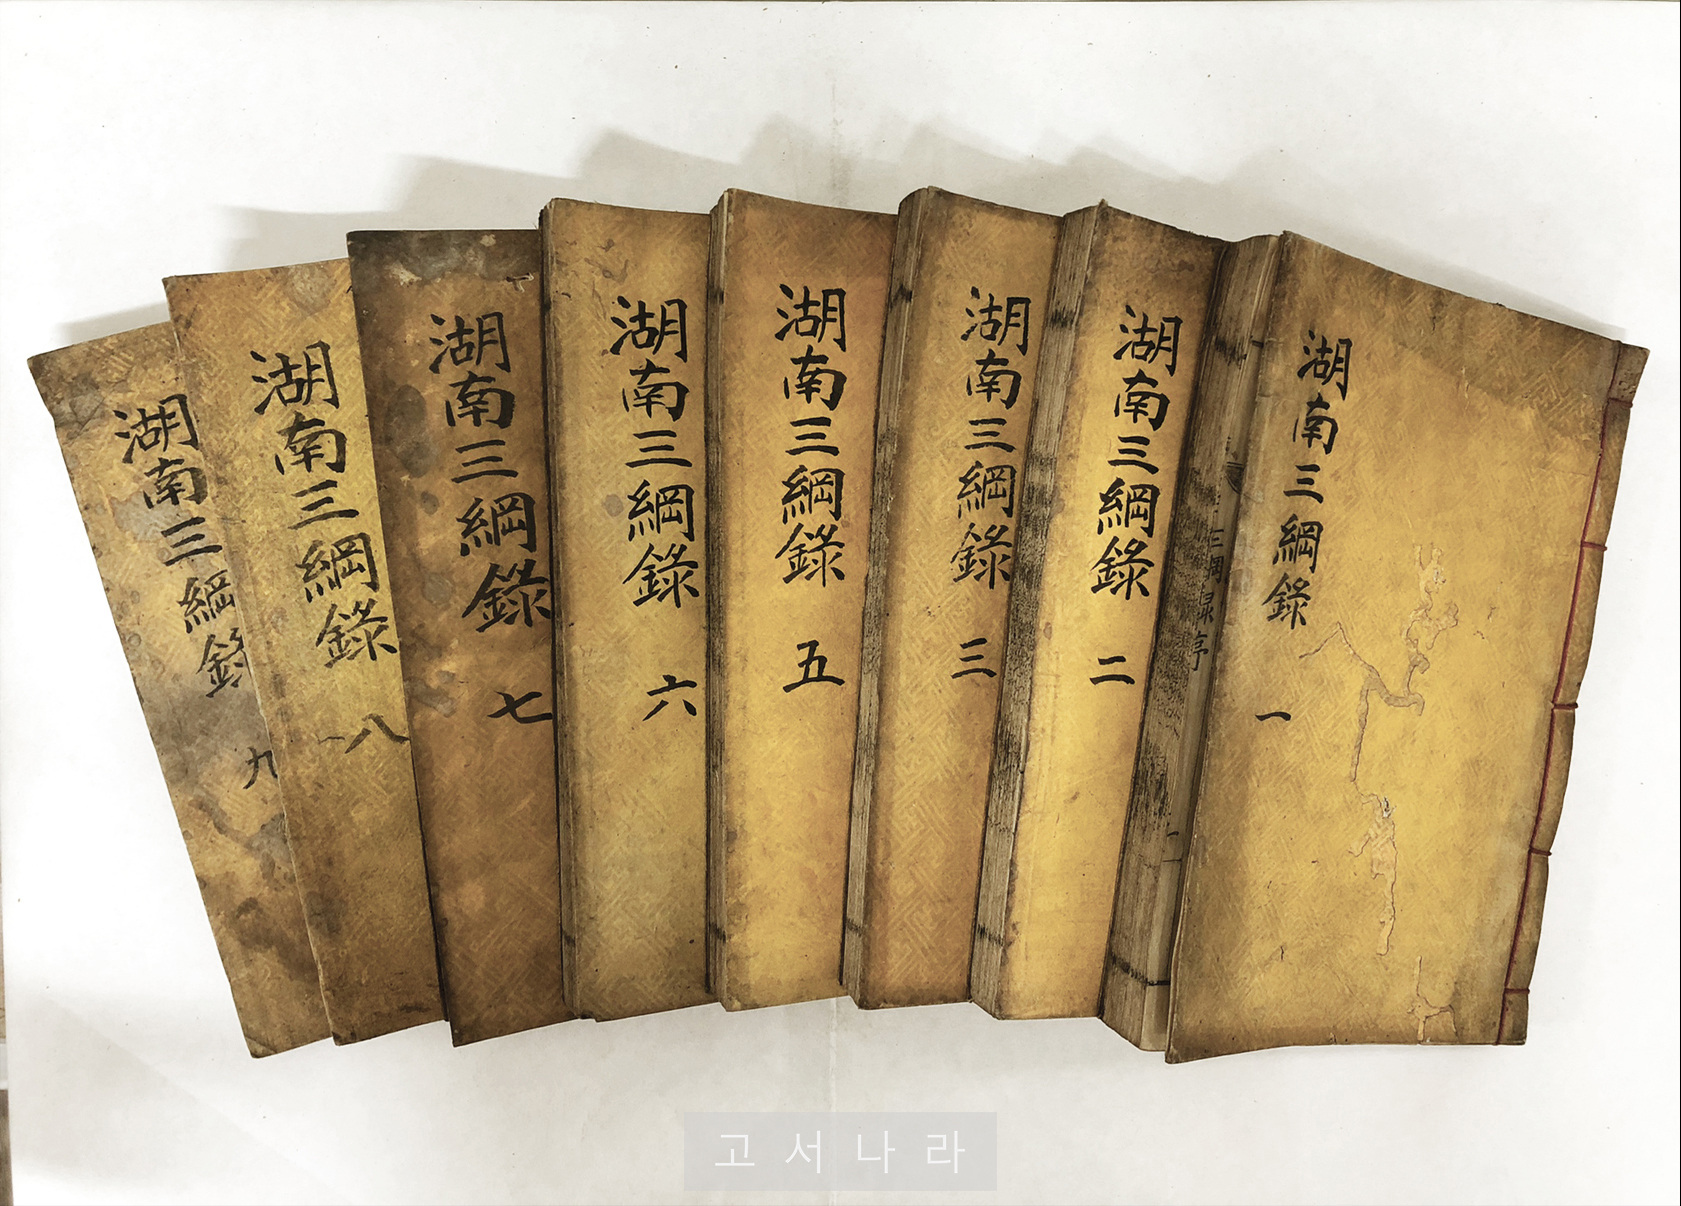 湖南三綱錄 一
湖南三綱錄 二
湖南三綱錄 三
湖南三綱錄 五
湖南三綱錄 六
湖南三綱錄 七
湖南三綱錄 八
湖南三綱錄 九
고서나라